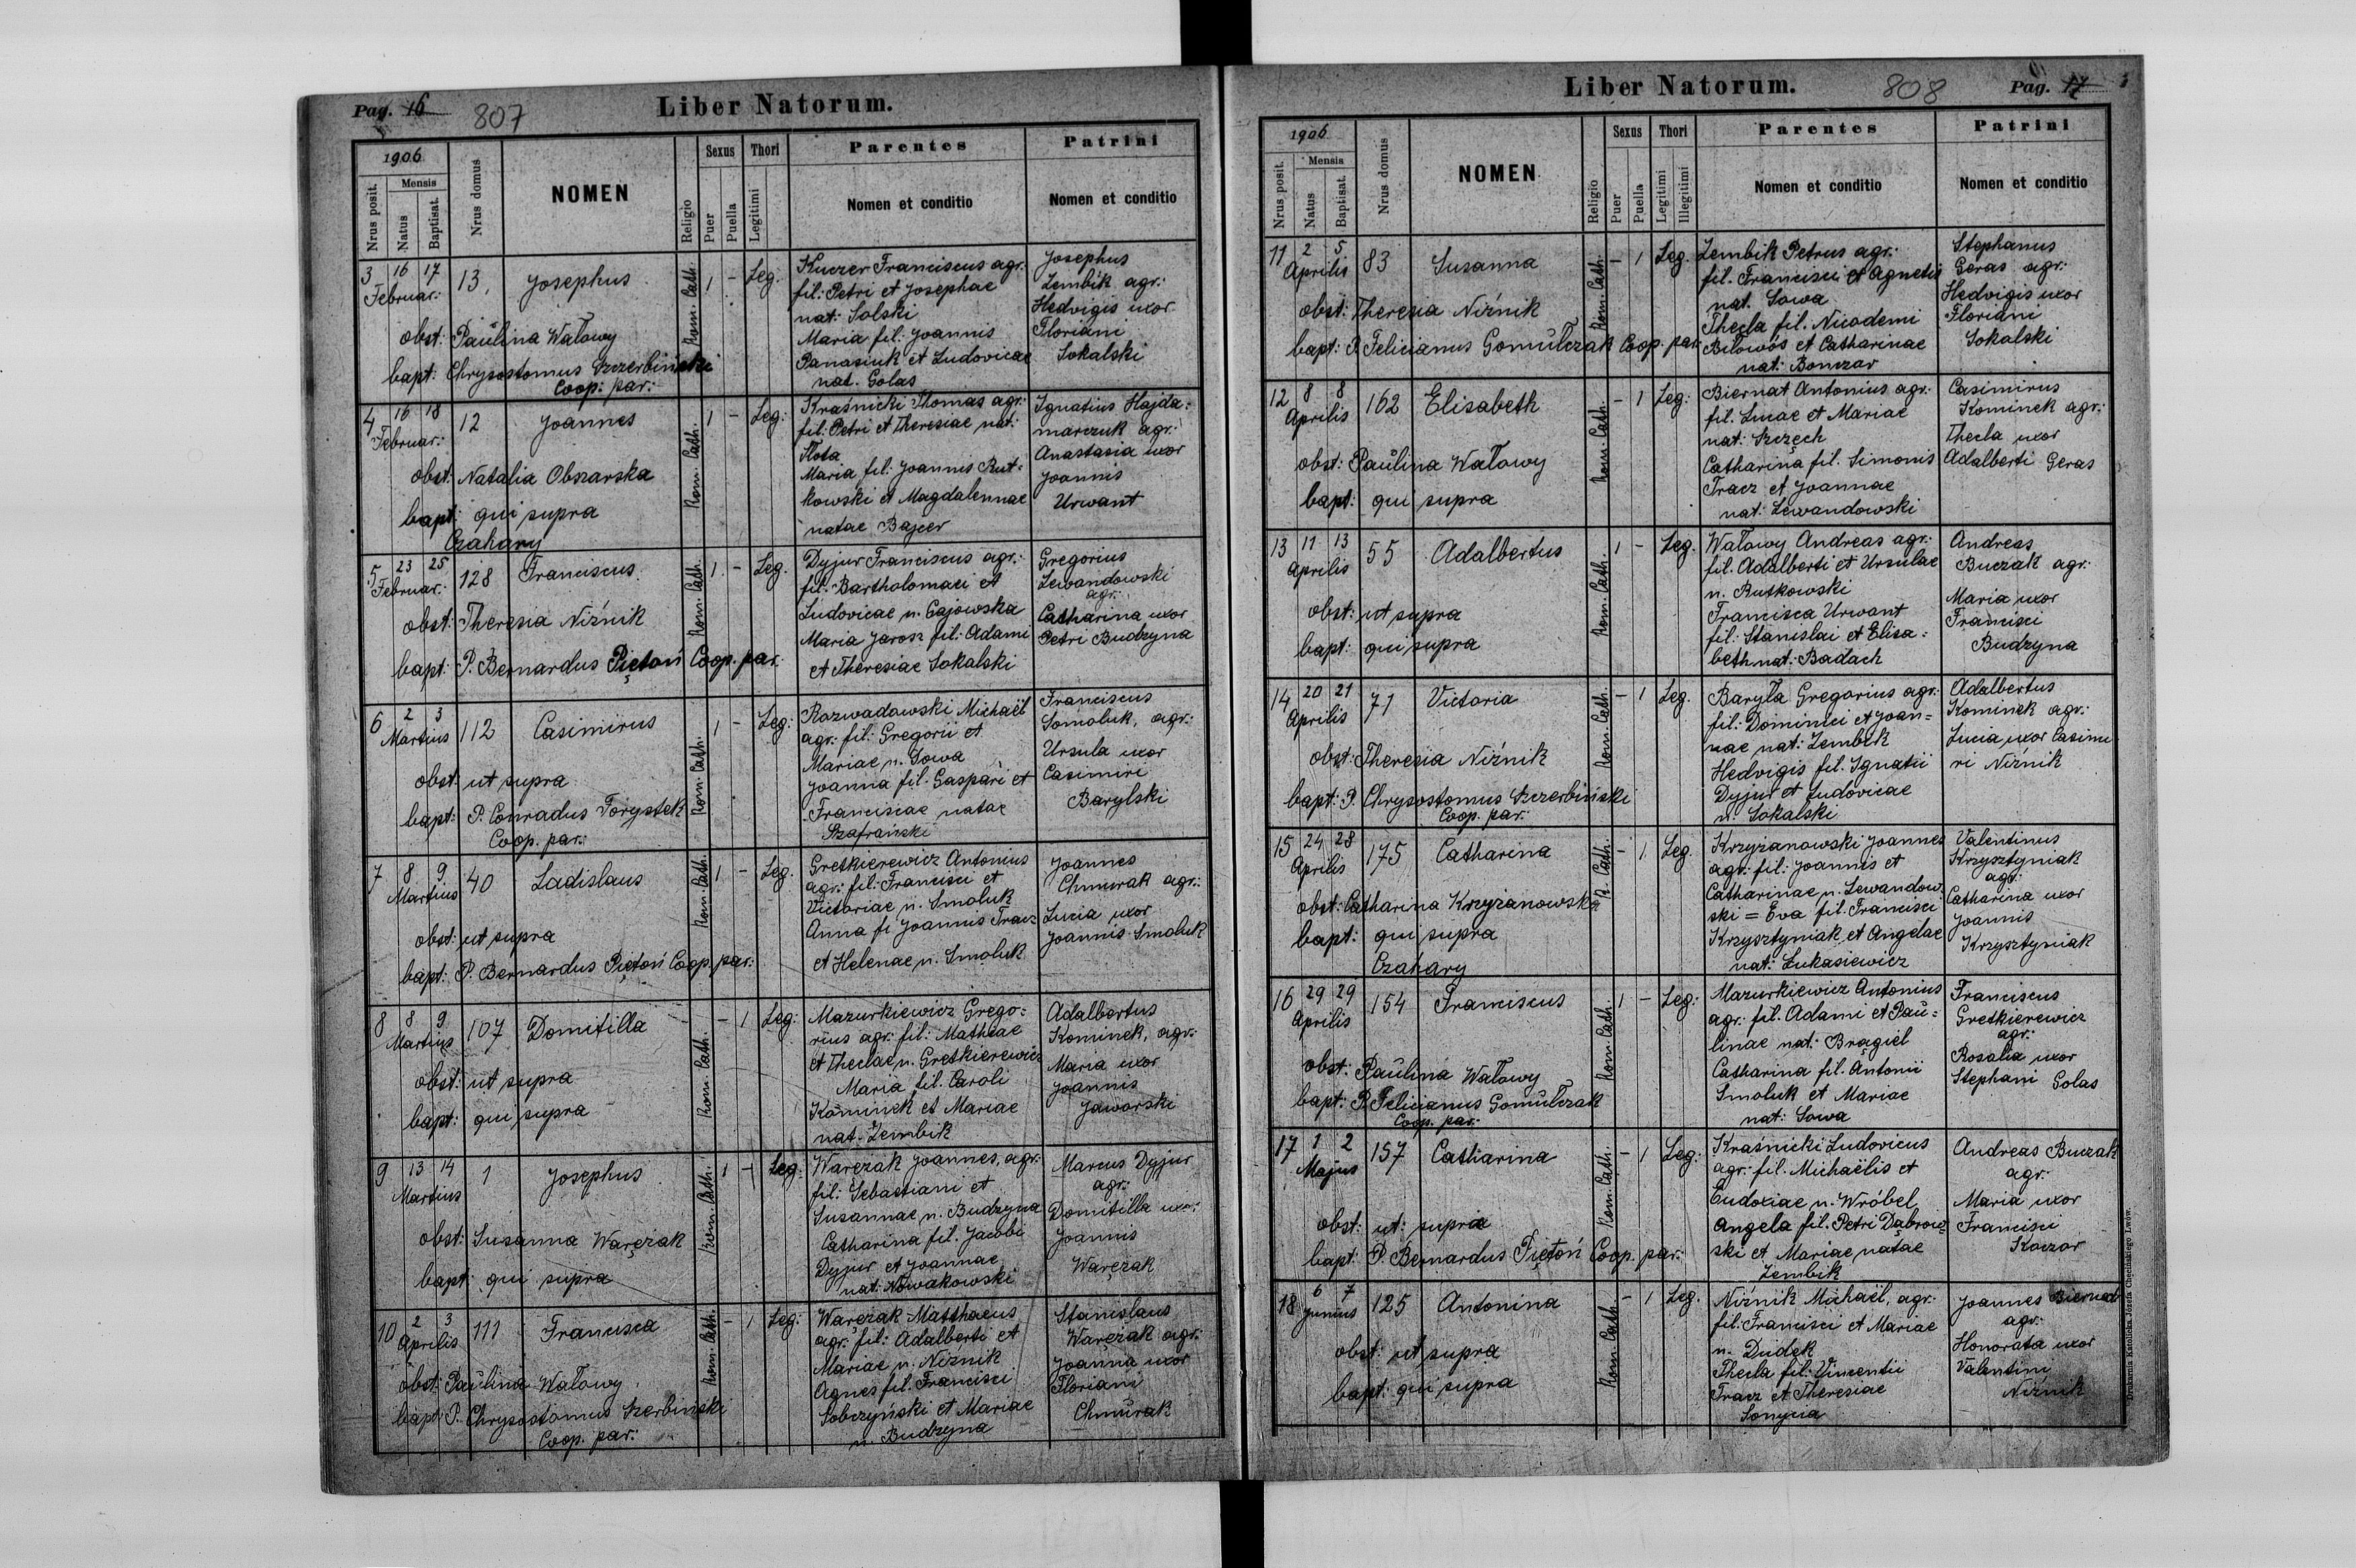 Pag. 16
807
Liber Natorum.
1906
Nrus posit.
Mensis
Natus
Baptisat.
Nrus domus
NOMEN
Religio
Sexus
Puer
Puella
Thori
Legitimi
Parentes
Nomen et conditio
Patrini
Nomen et conditio
3 16 17 13, Josephus Rom. Cath. 1 - Leg.
Februar:
obst: Paulina Watowy
bapt: Chrysostomus Szczerbiński
Coop: par:
Kuczer Franciscus agr.
fil: Petri et Josephae
nat: Solski
Maria fil: Joannis
Panasiuk et Ludovicae
nat. Golas
Josephus
Zembik agr:
Hedvigis uxor
Floriani
Sokalski
4 16 18 12 Joannes Rom. Cath. 1 - Leg:
Februar:
obst: Natalia Obszarska
bapt: qui supra
Czahary
Kraśnicki Thomas agr:
fil: Petri et Theresiae nat:
Flota
Maria fil: Joannis Rut=
kowski et Magdalennae
natae Bajcer
Ignatius Hajda=
marczuk agr:
Anastasia uxor
Joannis
Urwant
5 23 25 128 Franciscus Rom. Cath. 1 - Leg.
Februar:
obst: Theresia Niźnik
bapt: P. Bernardus Piętoń Coop. par:
Dyjur Franciscus agr:
fil: Bartholomaei et
Ludovicae n. Gajowska
Maria Jarosz fil: Adami
et Theresiae Sokalski
Gregorius
Lewandowski
agr:
Catharina uxor
Petri Budzyna
6 2 3 112 Casimirus Rom. Cath. 1 - Leg:
Martius
obst: ut supra
bapt: P. Conradus Forystek
Coop. par:
Rozwadowski Michaël
agr: fil: Gregorii et
Mariae n. Sowa
Joanna fil. Gaspari et
Franciscae natae
Szafrański
Franciscus
Somoluk, agr:
Ursula uxor
Casimiri
Barylski
7 8 9 40 Ladislaus Rom. Cath. 1 - Leg.
Martius
obst: ut supra
bapt: P. Bernardus Pięton Coop. par:
Gretkierewicz Antonius
agr: fil: Francisci et
Victoriae n. Smoluk
Anna fi Joannis Tracz
et Helenae n. Smoluk
Joannes
Chmurak agr:
Lucia uxor
Joannis Smoluk
8 8 9 107 Domitilla Rom. Cath. - 1 Leg:
Martius
obst: ut supra
bapt: qui supra
Mazurkiewicz Grego=
rius agr: fil: Mathiae
et Theclae n. Gretkierewicz
Maria fil. Caroli
Kominek et Mariae
nat. Zembik
Adalbertus
Kominek, agr:
Maria uxor
Joannis
Jaworski
9 13 14 1 Josephus Rom. Cath. 1 - Leg:
Martius
obst: Susanna Waręzak
bapt: qui supra
Waręzak Joannes, agr:
fil: Sebastiani et
Susannae n. Budzyna
Catharina fil. Jacobi
Dyjur et Joannae
nat: Nowakowski
Marcus Dyjur
agr:
Domitilla uxor
Joannis
Waręzak
10 2 3 111 Francisca Rom. Cath. - 1 Leg:
Aprilis
obst: Paulina Watowy
bapt: P. Chrysostomus Szerbiński
Coop. par:
Waręzak Matthaeus
agr: fil: Adalberti et
Mariae n. Niźnik
Agnes fil. Francisci
Sobczyński et Mariae
n. Budzyna
Stanislaus
Waręzak agr:
Joanna uxor
Floriani
Chmurak
Liber Natorum.
808
Pag. 17
1906
Nrus posit.
Mensis
Natus
Baptisat.
Nrus domus
NOMEN
Religio
Sexus
Puer
Puella
Thori
Legitimi
Illegitimi
Parentes
Nomen et conditio
Patrini
Nomen et conditio
11 2 5 83 Susanna Rom. Cath. - 1 Leg.
Aprilis
obst: Theresia Niźnik
bapt: P. Felicianus Gomułczak Coop. par:
Zembik Petrus agr:
fil. Francisci et Agnetis
nat. Sowa
Thecla fil. Nicodemi
Biłowos et Catharinae
nat: Bonczar
Stephanus
Geras agr:
Hedvigis uxor
Floriani
Sokalski
12 8 8 162 Elisabeth Rom. Cath. - 1 Leg:
Aprilis
obst: Paulina Watowy
bapt: qui supra
Biernat Antonius agr:
fil. Lucae et Mariae
nat: Szczęch
Catharina fil. Simonis
Tracz et Joannae
nat: Lewandowski
Casimirus
Kominek agr:
Thecla uxor
Adalberti Geras
13 11 13 55 Adalbertus Rom. Cath. 1 - Leg.
Aprilis
obst: ut supra
bapt: qui supra
Watowy Andreas agr:
fil. Adalberti et Ursulae
n. Rutkowski
Francisca Urwant
fil: Stanislai et Elisa=
beth nat: Badach
Andreas
Buczak agr:
Maria uxor
Francisci
Budzyna
14 20 21 71 Victoria Rom. Cath. - 1 Leg.
Aprilis
obst: Theresia Niźnik
bapt: P. Chrysostomus Szczerbiński
Coop. par:
Baryła Gregorius agr:
fil: Dominici et Joan=
nae nat: Zembik
Hedvigis fil. Ignatii
Dyjur et Ludovicae
n. Sokalski
Adalbertus
Kominek agr:
Lucia uxor Casimi
ri Niźnik
15 24 28 175 Catharina R. Cath. - 1 Leg.
Aprilis
obst: Catharina Krzyżanowsk
bapt: qui supra
Czahary
Krzyżanowski Joannes
agr: fil: Joannis et
Catharinae n. Lewandow
ski = Eva fil. Francisci
Krzysztyniak et Angelae
nat: Łukasiewicz
Valentinus
Krzysztyniak
agr:
Catharina uxor
Joannis
Krzysztyniak
16 29 29 154 Franciscus Rom. Cath. 1 - Leg:
Aprilis
obst: Paulina Watowy
bapt: P. Felicianus Gomułczak
Coop. par:
Mazurkiewicz Antonius
agr: fil. Adami et Pau=
linae nat: Brągiel
Catharina fil. Antonii
Smoluk et Mariae
nat: Sowa
Franciscus
Gretkierewicz
agr:
Rosalia uxor
Stephani Golas
17 1 2 157 Catharina Rom. Cath. - 1 Leg:
Majus
obst: ut: supra
bapt: P. Bernardus Pięton Coop. par:
Kraśnicki Ludovicus
agr: fil. Michaëlis et
Eudoxiae n. Wróbel
Angela fil. Petri Dąbrow=
ski et Mariae natae
Zembik
Andreas Buczak
agr:
Maria uxor
Francisci
Koczor
18 6 7 125 Antonina Rom. Cath. - 1 Leg.
Junius
obst: ut supra
bapt: qui supra
Niźnik Michaël, agr:
fil: Francisci et Mariae
n. Dudek
Thecla fil: Vincentii
Tracz et Theresiae
Sonycia
Joannes Biernat
agr:
Honorata uxor
Valentini
Niźnik
Drukarnia Katolicka Józefa Chęcińskiego Lwów.